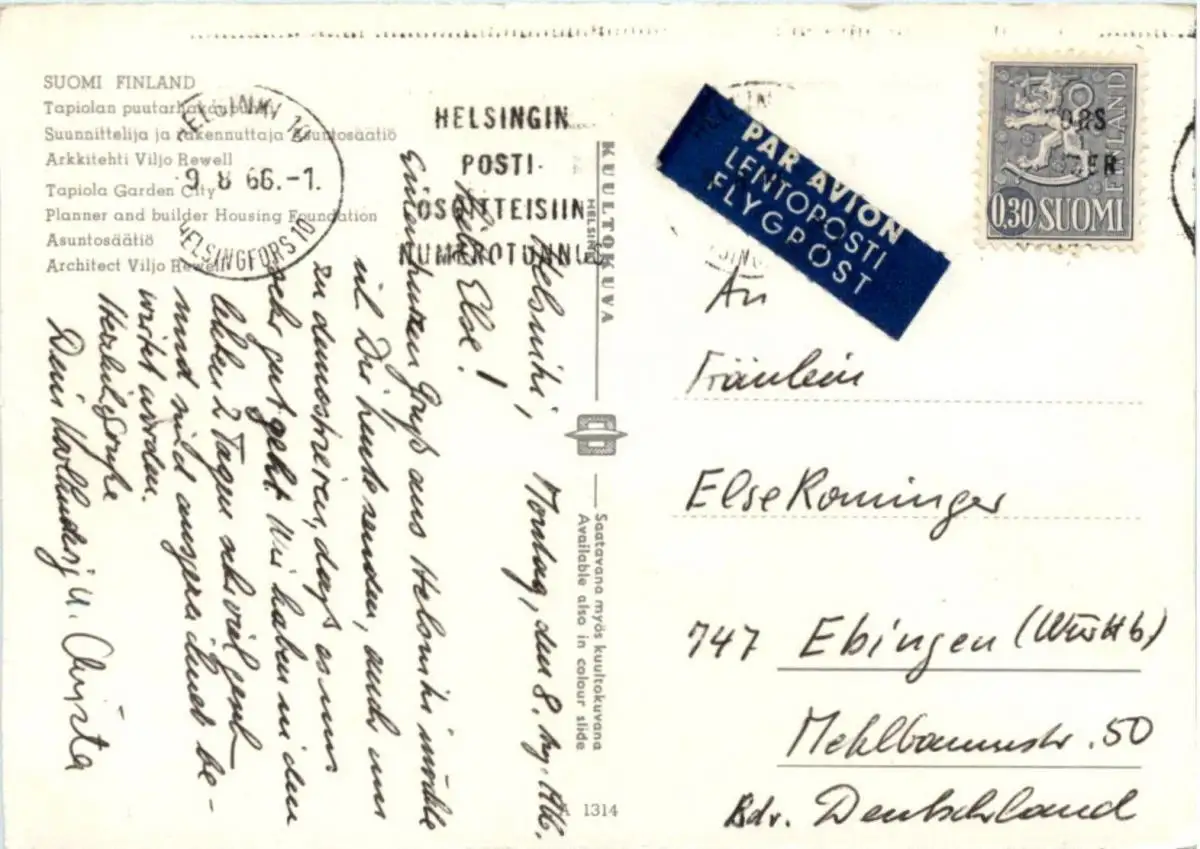 SUOMI FINLAND
Tapiolan puutarhakaupunki
Suunnittelija ja rakennuttaja Asuntosäätiö
Arkkitehti Viljo Rewell
Tapiola Garden City
Planner and builder Housing Foundation
Asuntosäätiö
Architect Viljo Rewell
HELSINKI 10
9. 8 66.-1.
HELSINGFORS 10
HELSINGIN
POSTI-
OSOITTEISIIN
NUMEROTUNNUS
KUULTOKUVA
HELSINKI
Saatavana myös kuultokuvana
Available also in colour slide
1314
PAR AVION
LENTOPOSTI
FLYGPOST
FINLAND
0,30 SUOMI
Helsinki, Montag, den 8.
Liebe Else!
Einen Gruß aus Helsinki möchte
ich Dir heute senden, auch um
zu demonstrieren, daß es uns
sehr gut geht. Wir haben in den
letzten 2 Tagen sehr viel
und sind be-
wirtet worden.
Herzliche Grüße
Dein u. Christa
An
Fräulein
Else Rominger
747 Ebingen (Württb)
Mehlbaumstr. 50
Bdr. Deutschland